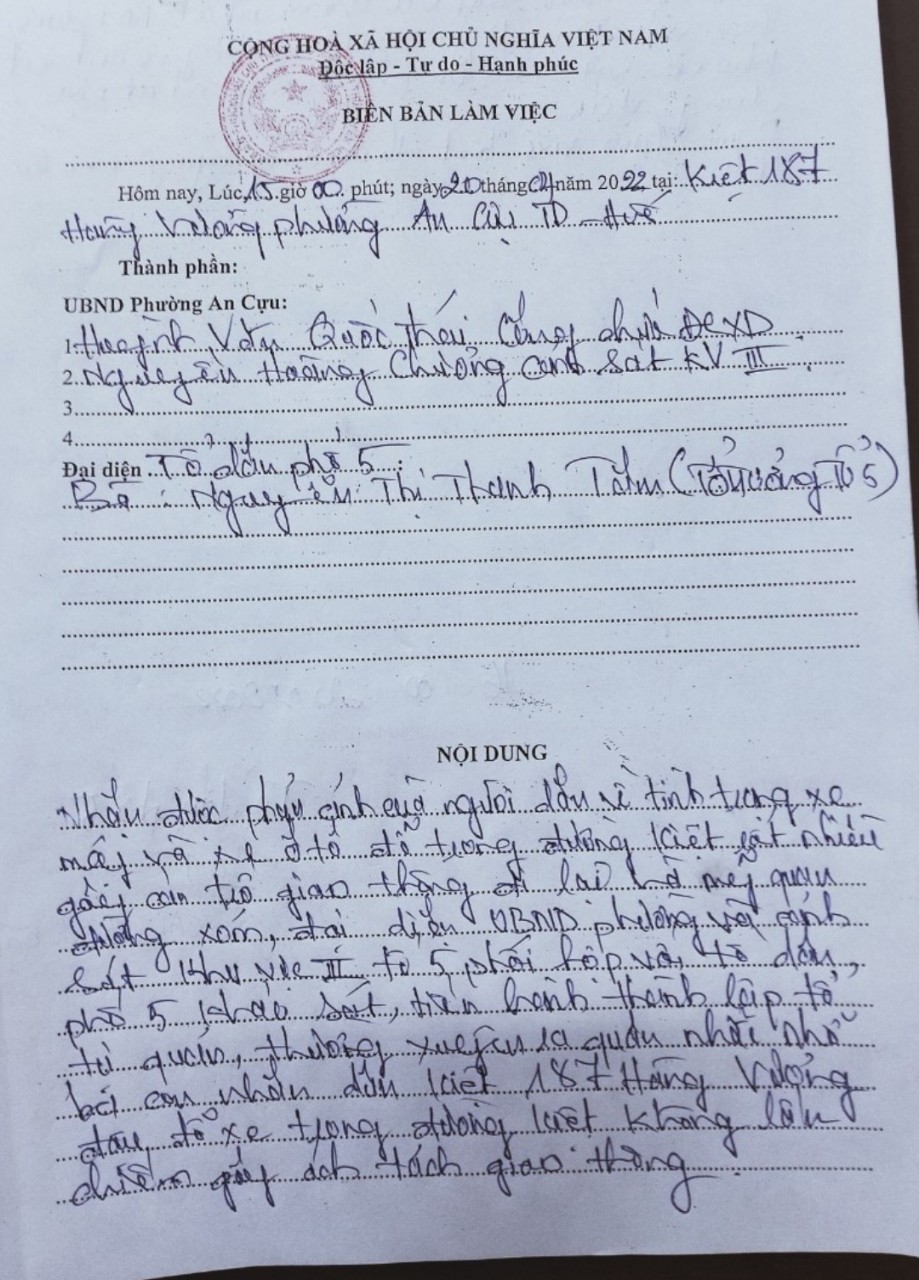 CỘNG HOÀ XÃ HỘI CHỦ NGHĨA VIỆT NAM
Độc lập - Tự do - Hạnh phúc
BIÊN BẢN LÀM VIỆC
Hôm nay, Lúc 15 giờ 00 phút; ngày 20 tháng 04 năm 2022 tại: Kiệt 187
Hùng Vương phường An Cựu TP Huế
Thành phần:
UBND Phường An Cựu:
1. Huỳnh Văn Quốc Thái Công chức ĐCXD
2. Nguyễn Hoàng Chương Cảnh sát KV III
3
4
Đại diện Tổ dân phố 5:
Bà: Nguyễn Thị Thanh Tâm (Tổ trưởng Tổ 5)
NỘI DUNG
Nhận được phản ánh của người dân về tình trạng xe
máy và xe ô tô đỗ trong đường kiệt rất nhiều
gây cản trở giao thông đi lại và mỹ quan
đường xóm, đại diện UBND phường và cảnh
sát khu vực III tổ 5 phối hợp với tổ dân
phố 5 khảo sát, tiến hành thành lập tổ
tự quản, thường xuyên ra quân nhắc nhở
bà con nhân dân kiệt 187 Hùng Vương
đậu đỗ xe trong đường kiệt không lấn
chiếm gây ách tách giao thông